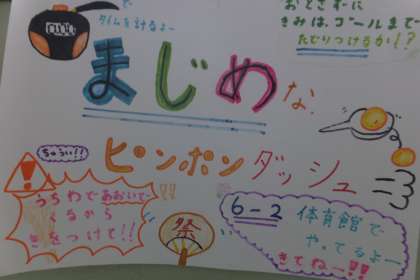 で
タイムを計るよー
おとさずに
きみは、ゴールまで
たどりつけるか!?
まじめな
ピンポンダッシュ
ちゅうい!!
うちわであおいでー
くるから
きをつけて!!
祭
6-2 体育館で
やってるよー
きてねー!!